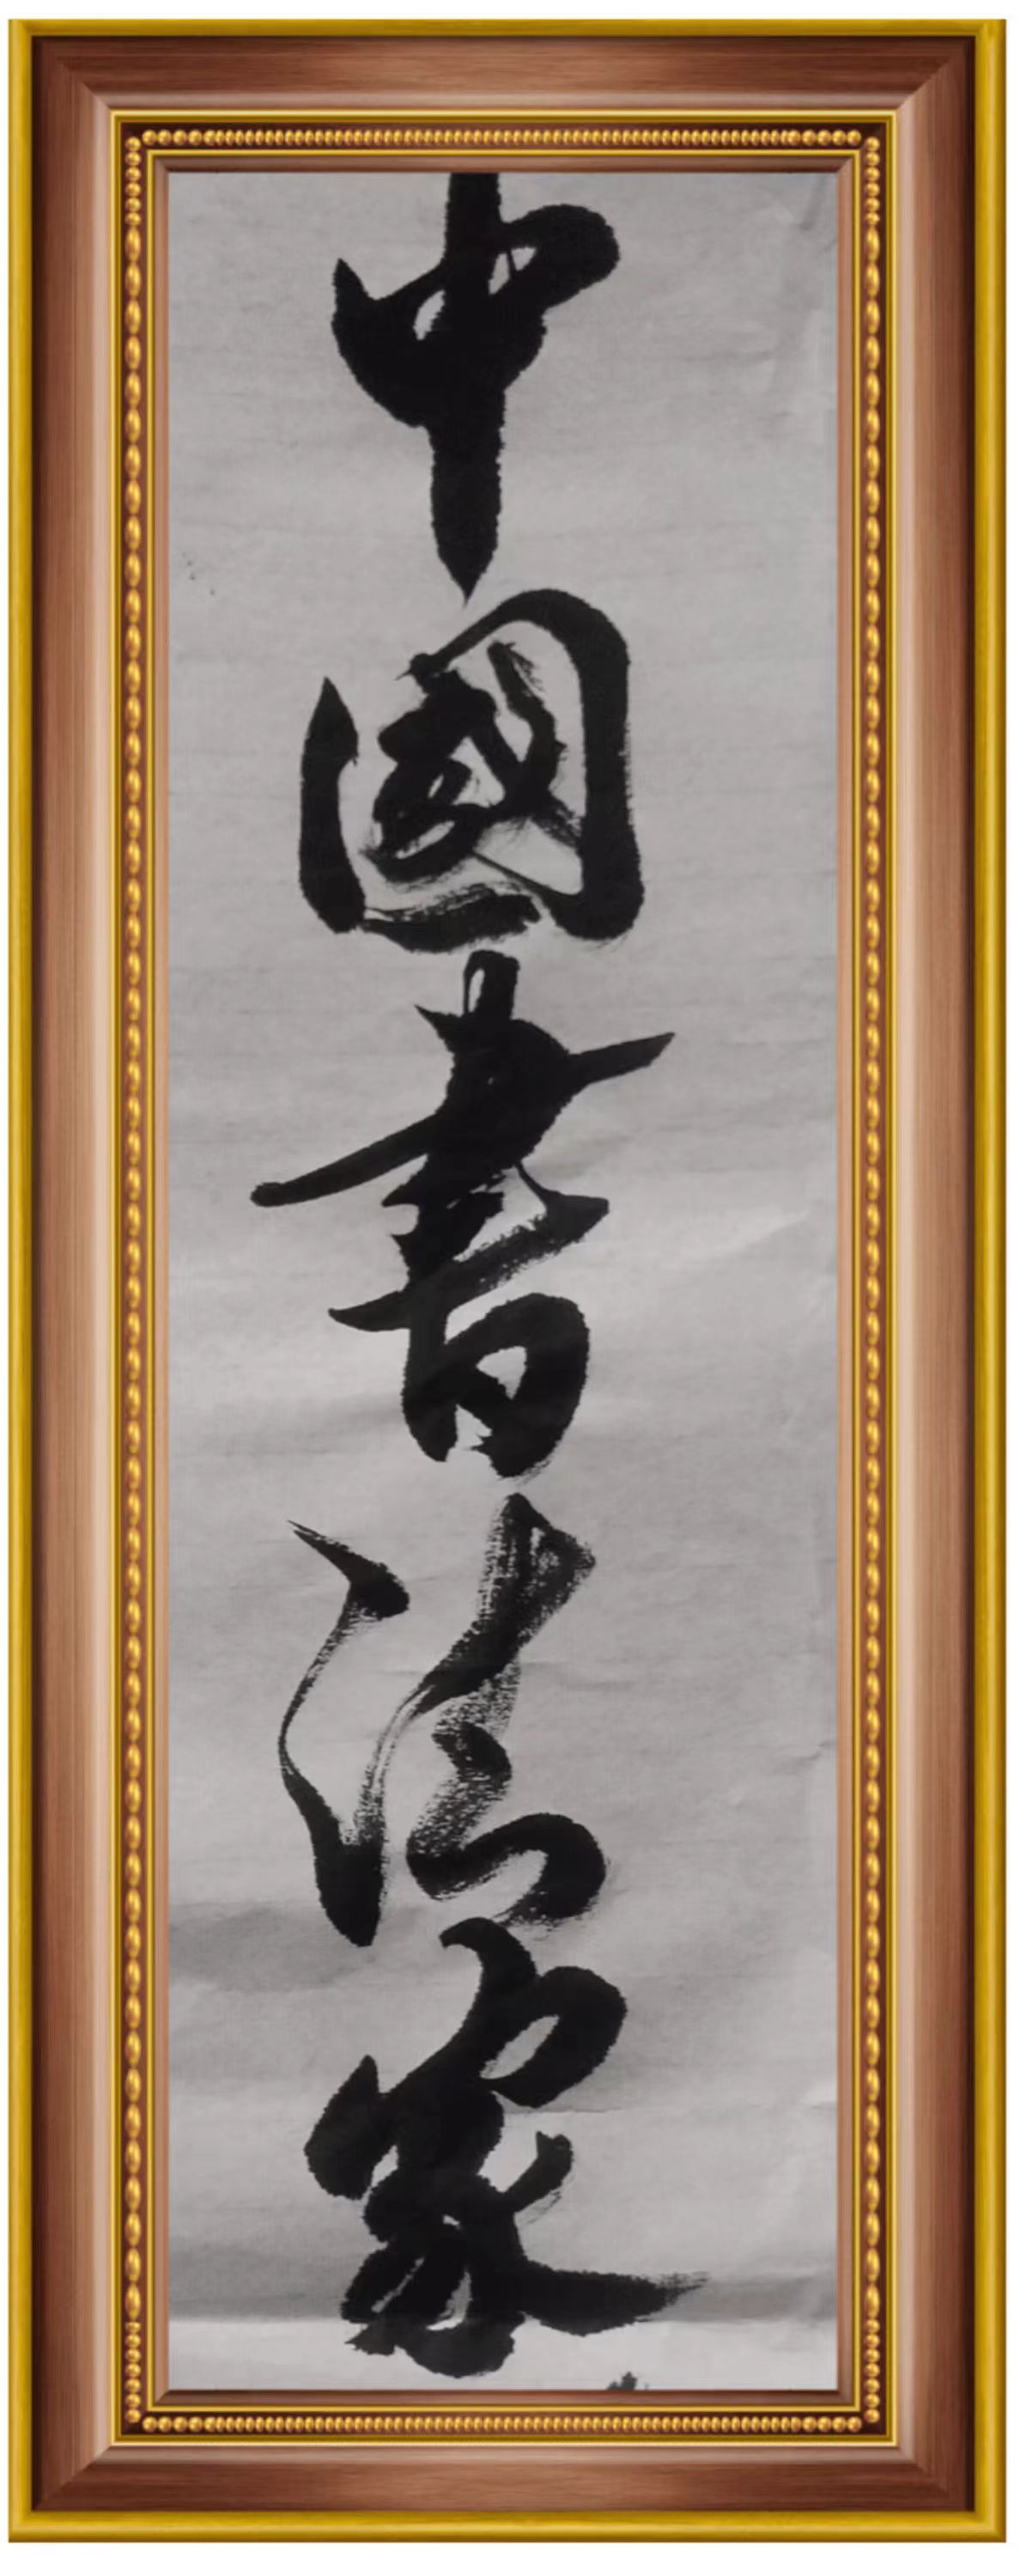 中國書法家